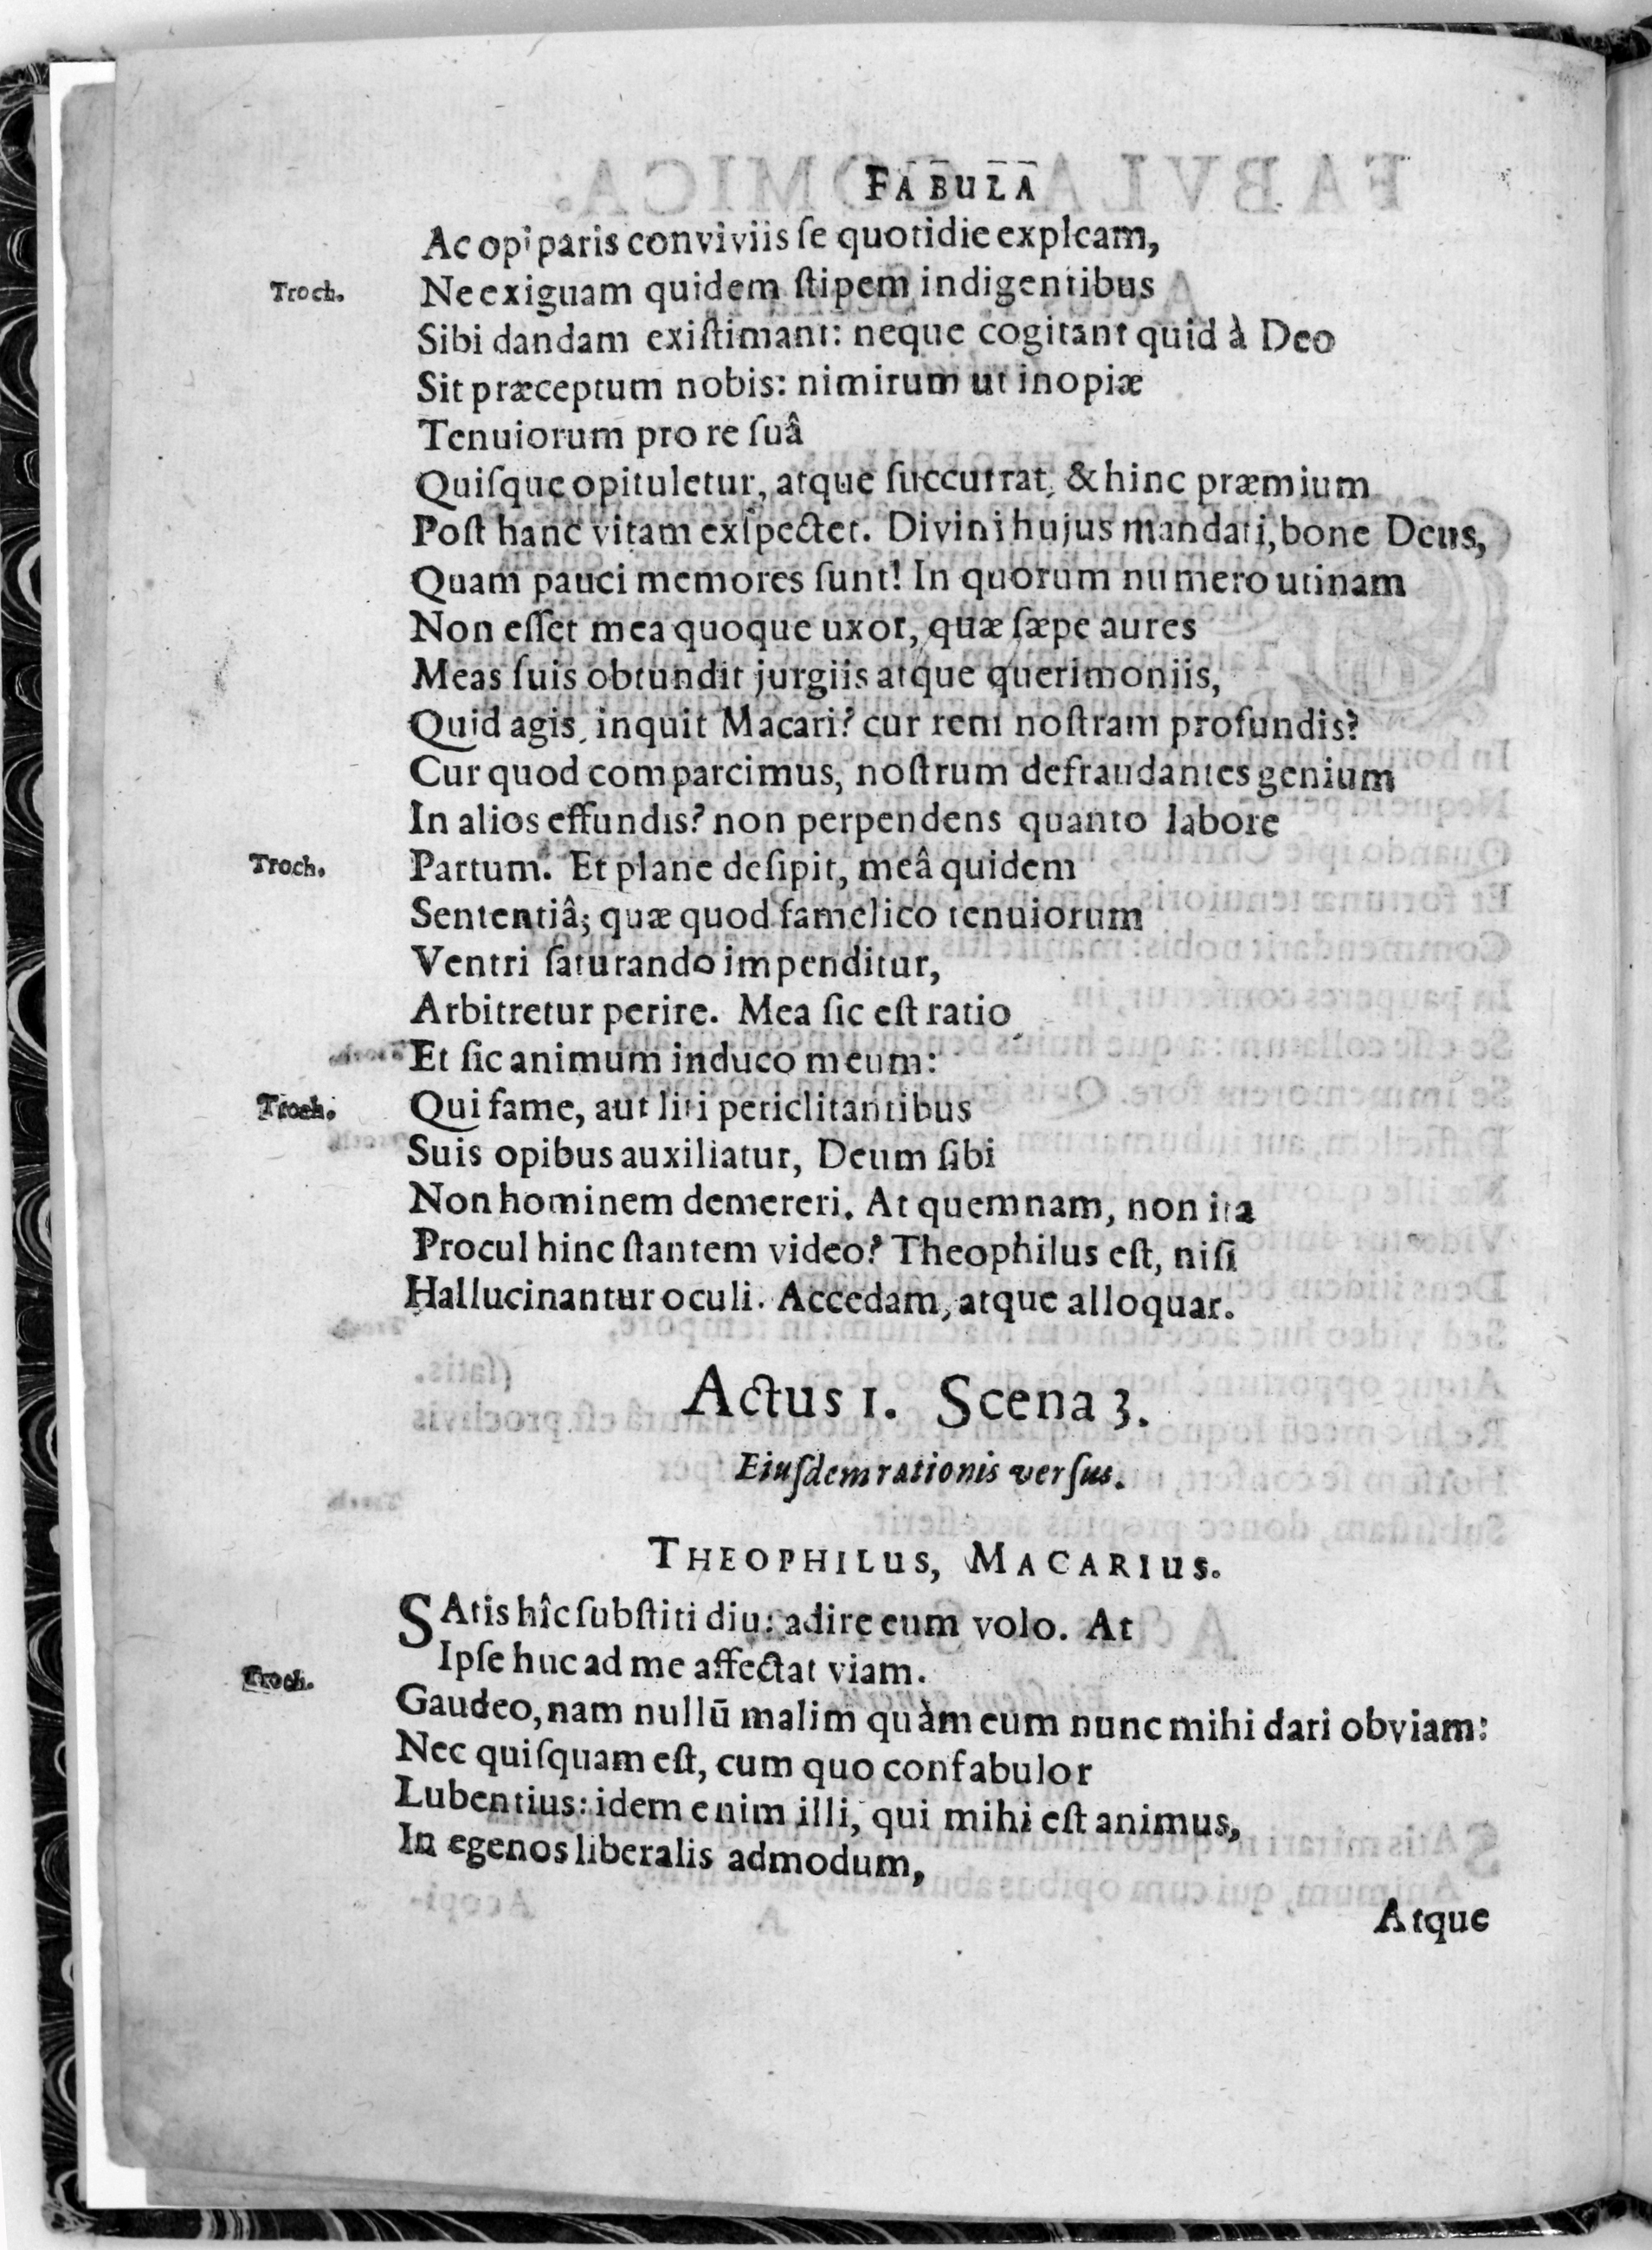 FABULA
Ac opiparis conviviis ſe quotidie expleam,
Troch. Ne exiguam quidem ſtipem indigentibus
Sibi dandam exiſtimant: neque cogitant quid à Deo
Sit præceptum nobis: nimirum ut inopiæ
Tenuiorum pro re ſuâ
Quiſque opituletur, atque ſuccurrat, & hinc præmium
Poſt hanc vitam exſpectet. Divini hujus mandati, bone Deus,
Quam pauci memores ſunt! In quorum numero utinam
Non eſſet mea quoque uxor, quæ ſæpe aures
Meas ſuis obtundit jurgiis atque querimoniis,
Quid agis, inquit Macari? cur rem noſtram profundis?
Cur quod comparcimus, noſtrum defraudantes genium
In alios effundis? non perpendens quanto labore
Troch. Partum. Et plane deſipit, meâ quidem
Sententiâ; quæ quod famelico tenuiorum
Ventri ſaturando impenditur,
Arbitretur perire. Mea ſic eſt ratio
Et ſic animum induco meum:
Troch. Qui fame, aut ſiti periclitantibus
Suis opibus auxiliatur, Deum ſibi
Non hominem demereri. At quemnam, non ita
Procul hinc ſtantem video? Theophilus eſt, niſi
Hallucinantur oculi. Accedam, atque alloquar.
Actus 1. Scena 3.
Eiuſdem rationis verſus.
THEOPHILUS, MACARIUS.
SAtis hîc ſubſtiti diu: adire eum volo. At
Ipſe huc ad me affectat viam.
Troch. Gaudeo, nam nullū malim quàm eum nunc mihi dari obviam:
Nec quiſquam eſt, cum quo confabulor
Lubentius: idem enim illi, qui mihi eſt animus,
In egenos liberalis admodum,
Atque